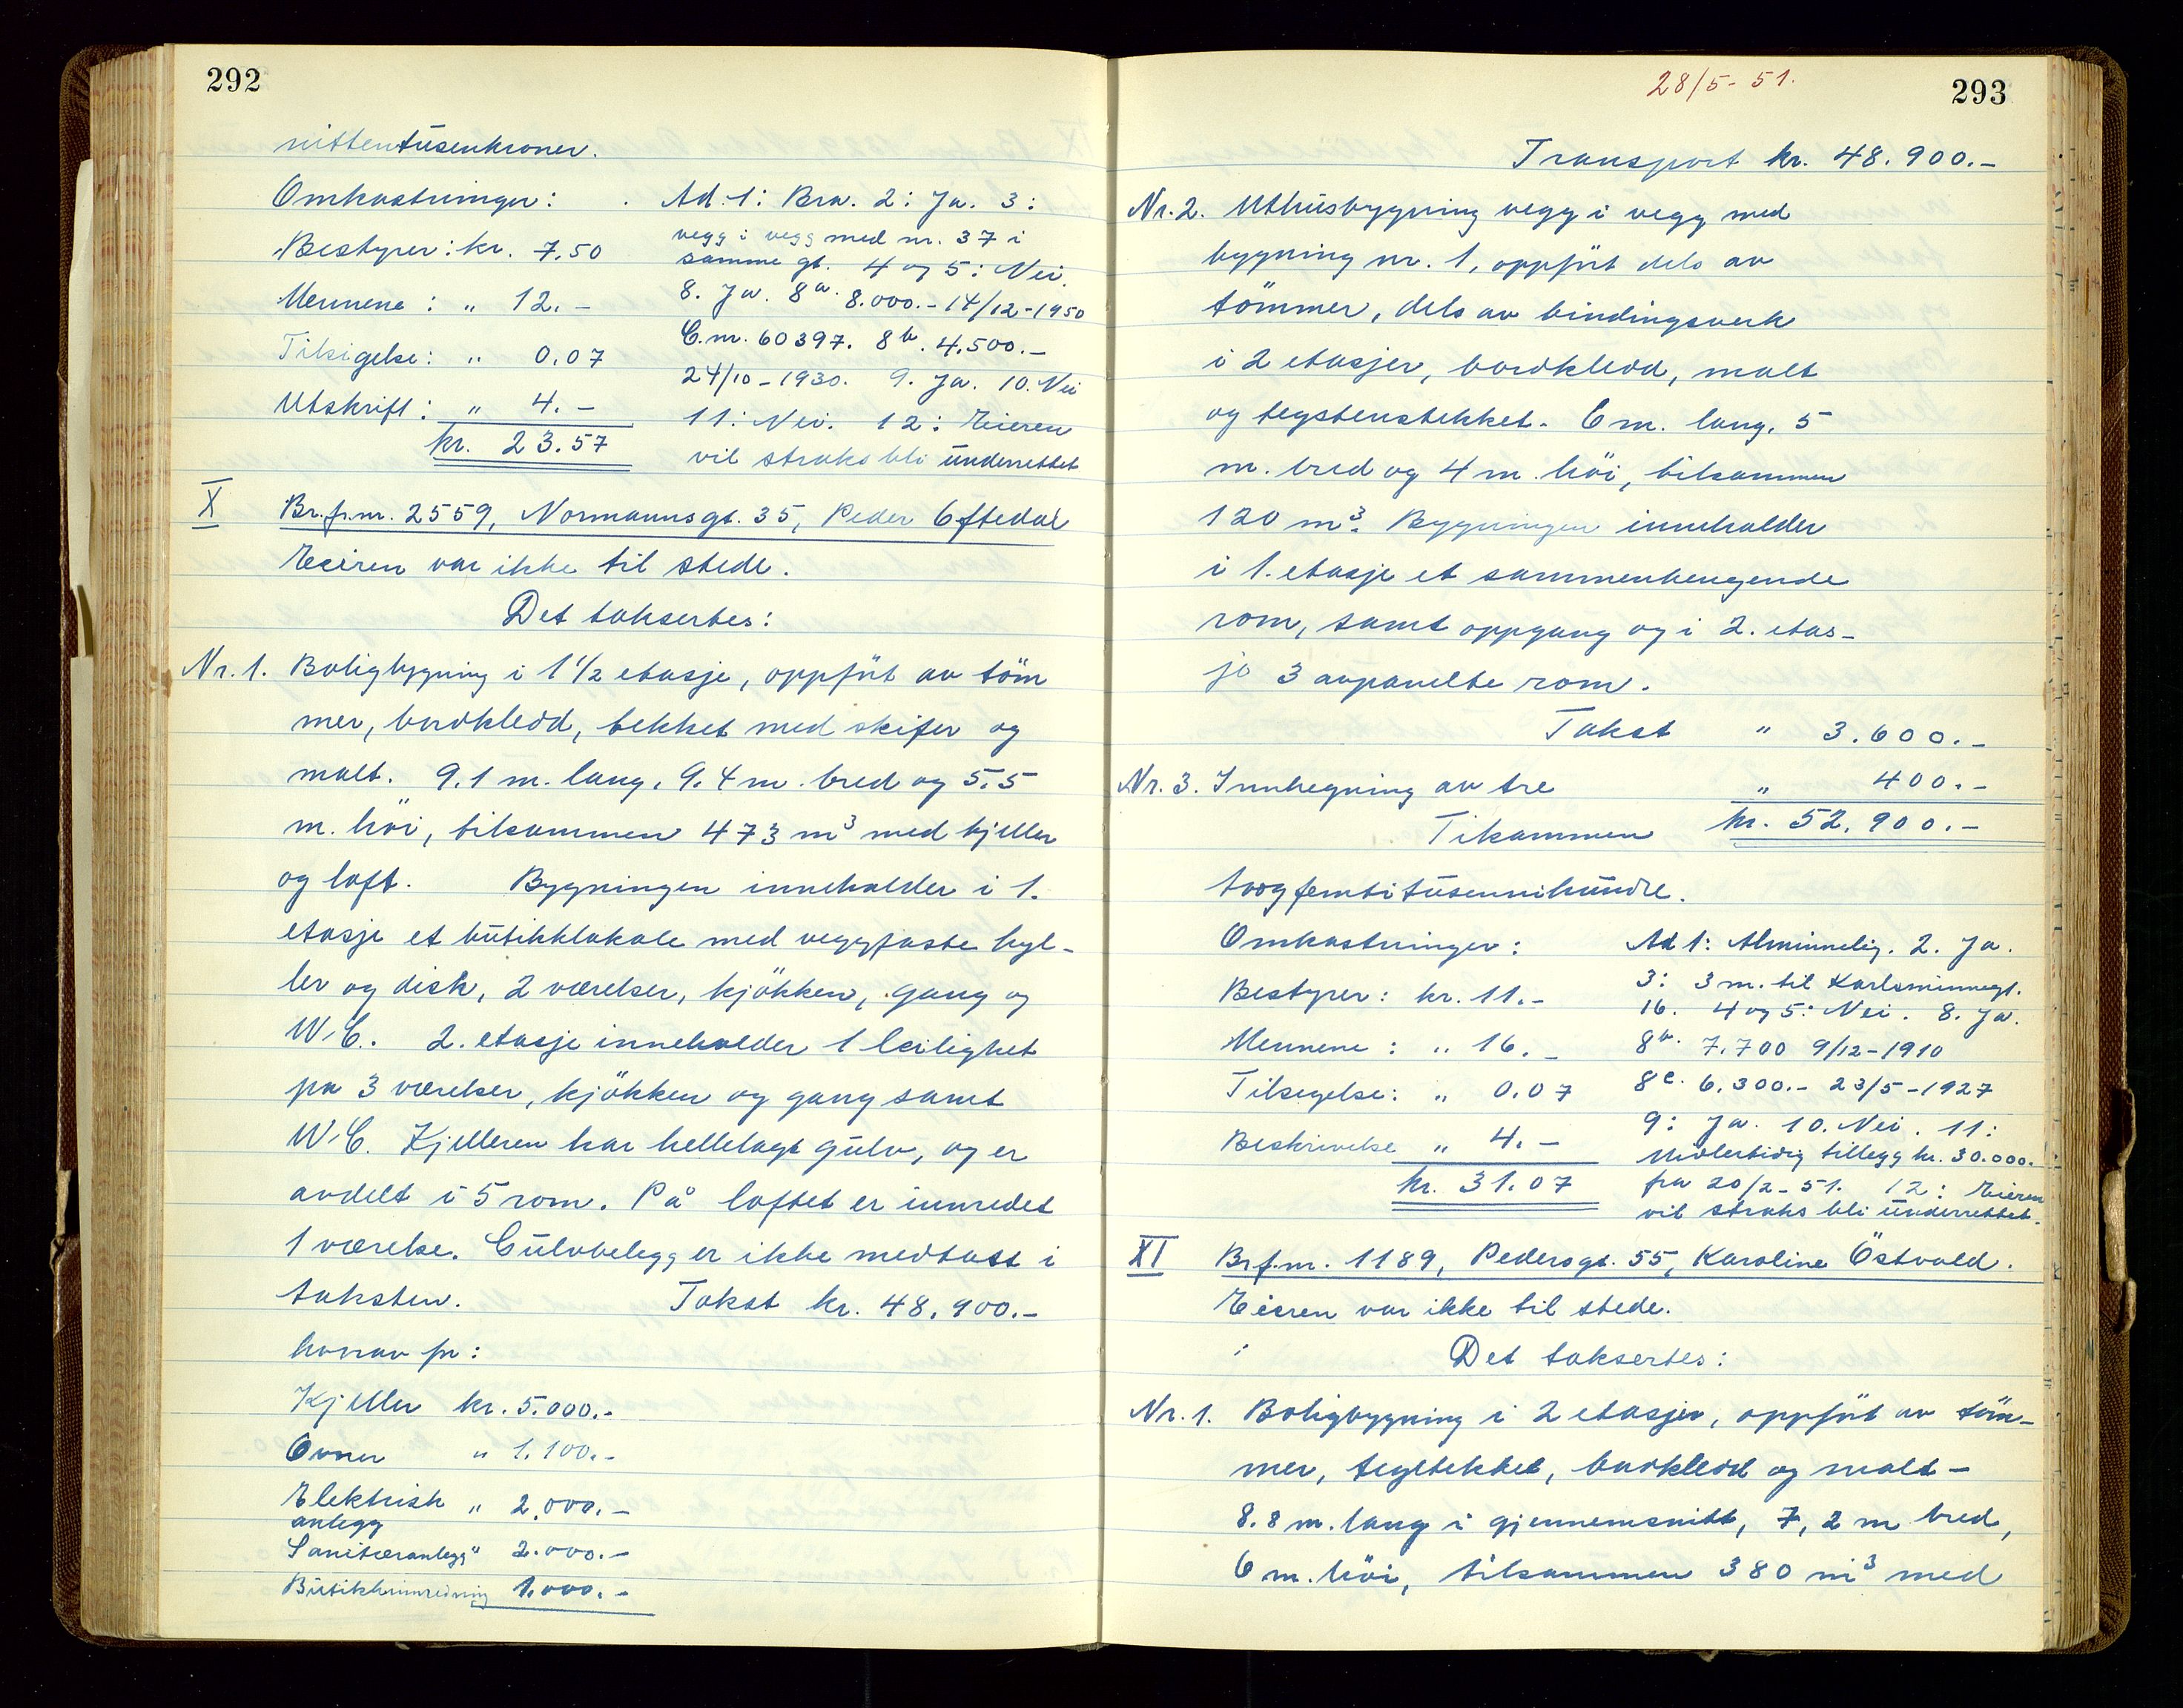 292
nittentusenkroner.
Omkostninger:
Bestyrer: kr. 7.50
Mennene: " 12.-
Tilsigelse: " 0.07
Utskrift: " 4.-
kr. 23.57
Ad. 1: Bra. 2: Ja. 3:
vegg i vegg med nr. 37 i
samme gt. 4 og 5: Nei.
8. Ja. 8a. 8.000.- 14/12-1950
C.nr. 60397. 8b. 4.500.-
24/10-1930. 9. Ja. 10. Nei
11: Nei. 12: Eieren
vil straks bli underrettet
X Br.f.nr. 2559, Normannsgt. 35, Peder Eftedal
Eieren var ikke til stede.
Det taksertes:
Nr. 1. Boligbygning i 1 1/2 etasje, oppført av töm
mer, bordkledd, tekket med skifer og
malt. 9.1 m. lang, 9.4 m. bred og 5.5
m. höi, tilsammen 473 m3 med kjeller
og loft. Bygningen inneholder i 1.
etasje et butikklokale med veggfaste hyl-
ler og disk, 2 værelser, kjökken, gang og
W.C. 2. etasje inneholder 1 leilighet
på 3 værelser, kjökken og gang samt
W.C. Kjelleren har hellelagt gulv, og er
avdelt i 5 rom. På loftet er innredet
1 værelse. Gulvbelegg er ikke medtatt i
taksten. Takst kr. 48.900.-
hvorav for:
Kjeller kr. 5.000.-
Ovner " 1.100.-
Elektrisk " 2.000.-
anlegg
Sanitæranlegg " 2.000.-
Butikkinnredning 1.000.-
28/5-51.
293
Transport kr. 48.900.-
Nr. 2. Uthusbygning vegg i vegg med
bygning nr. 1, oppfört dels av
tömmer, dels av bindingsverk
i 2 etasjer, bordkledd, malt
og teglstenstekket. 6 m. lang, 5
m. bred og 4 m. höi, tilsammen
120 m3. Bygningen inneholder
i 1. etasje et sammenhengende
rom, samt oppgang og i 2. etas-
je 3 avpanelte rom.
Takst " 3.600.-
Nr. 3. Innhegning av tre " 400.-
Tilsammen kr. 52.900.-
toogfemtitusennihundre.
Omkostninger:
Bestyrer: kr. 11.-
Mennene: " 16.-
Tilsigelse: " 0.07
Beskrivelse " 4.-
kr. 31.07
Ad 1: Alminnelig. 2. Ja.
3: 3 m. til Karlsminnegt.
16. 4 og 5: Nei. 8. Ja.
8b. 7.700 9/12-1910
8c. 6.300.- 23/5-1927
9: Ja. 10. Nei. 11:
Midlertidig tillegg kr. 30.000.
fra 20/2-51. 12: Eieren
vil straks bli underrettet.
XI Br.f.nr. 1189, Pedersgt. 55, Karoline Östvold.
Eieren var ikke til stede.
Det taksertes:
Nr. 1. Boligbygning i 2 etasjer, oppfört av töm-
mer, tegltekket, bordkledd og malt-
8.8 m. lang i gjennemsnitt, 7,2 m bred,
6 m. höi, tilsammen 380 m3 med